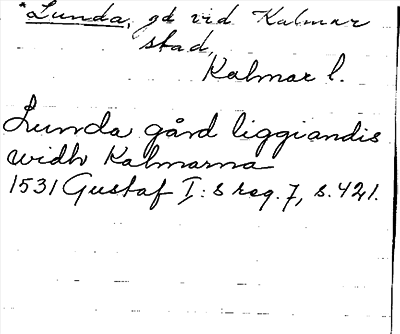 *Lunda, gd vid Kalmar
stad,
Kalmar l.
Lunda gård liggiandis
widh Kalmarna
1531 Gustaf I:s reg. 7, s. 421.